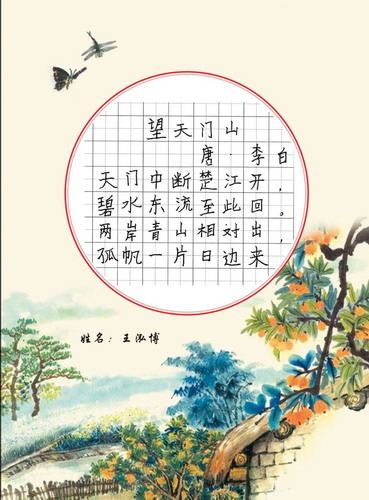 望天门山
唐·李白
天门中断楚江开，
碧水东流至此回。
两岸青山相对出，
孤帆一片日边来
姓名：王泓博